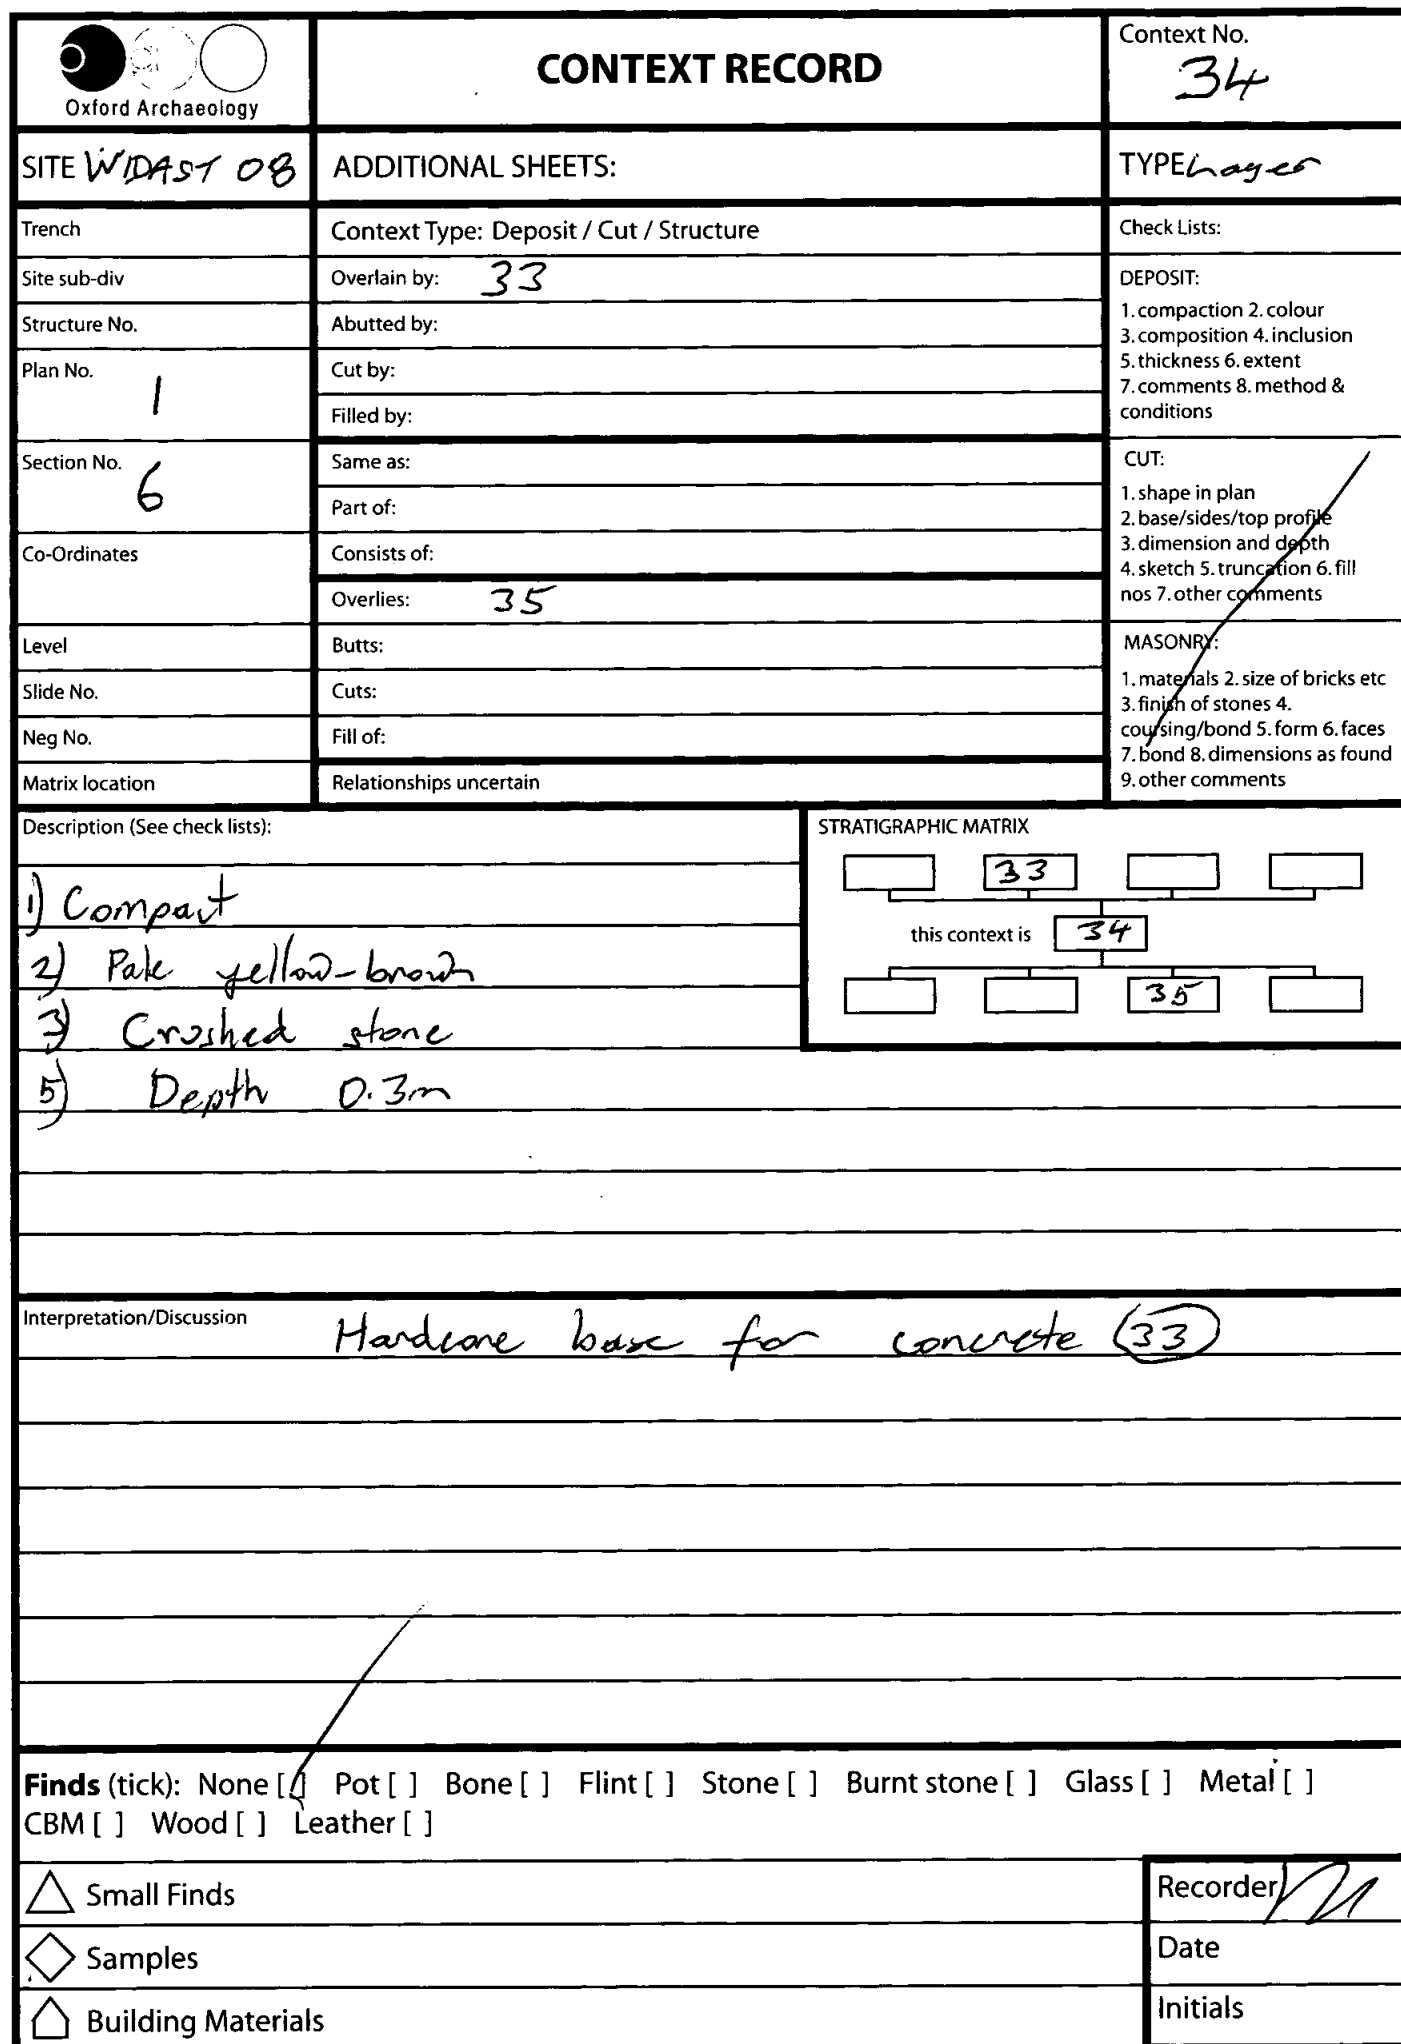 Oxford Archaeology
CONTEXT RECORD
Context No.
34
SITE WIDAST 08
ADDITIONAL SHEETS:
TYPE Layer
Trench
Site sub-div
Structure No.
Plan No. 1
Section No. 6
Co-Ordinates
Level
Slide No.
Neg No.
Matrix location
Context Type: Deposit / Cut / Structure
Overlain by: 33
Abutted by:
Cut by:
Filled by:
Same as:
Part of:
Consists of:
Overlies: 35
Butts:
Cuts:
Fill of:
Relationships uncertain
Check Lists:
DEPOSIT:
1. compaction 2. colour
3. composition 4. inclusion
5. thickness 6. extent
7. comments 8. method &
conditions
CUT:
1. shape in plan
2. base/sides/top profile
3. dimension and depth
4. sketch 5. truncation 6. fill
nos 7. other comments
MASONRY:
1. materials 2. size of bricks etc
3. finish of stones 4.
coursing/bond 5. form 6. faces
7. bond 8. dimensions as found
9. other comments
Description (See check lists):
1) Compact
2) Pale yellow-brown
3) Crushed stone
5) Depth 0.3m
STRATIGRAPHIC MATRIX
33
this context is 34
35
Interpretation/Discussion
Hardcore base for concrete (33)
Finds (tick): None [ ] Pot [ ] Bone [ ] Flint [ ] Stone [ ] Burnt stone [ ] Glass [ ] Metal [ ]
CBM [ ] Wood [ ] Leather [ ]
Small Finds
Samples
Building Materials
Recorder
Date
Initials